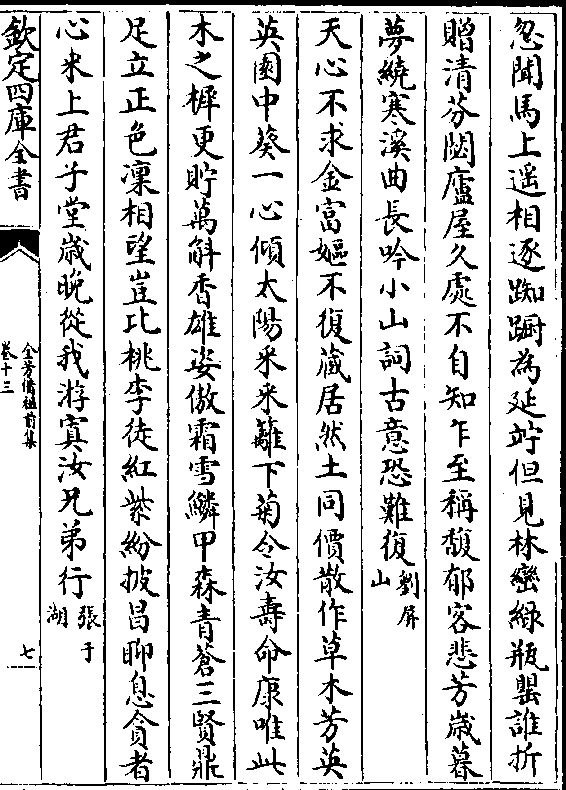 忽聞馬上遥相逐踟蹰為延竚但見林巒緑瓶罌誰折
贈清芬閟廬屋久處不自知乍至稱馥郁客悲芳歳暮
夢繞寒溪曲長吟小山詞古意恐難復劉屏山
天心不求金富嫗不復蔵居然土同價散作草木芳英
英園中葵一心傾太陽采采籬下菊令汝壽命康唯此
木之樨更貯萬斛香雄姿傲霜雪鱗甲森青蒼三賢鼎
足立正色凜相望豈比桃李徒紅紫紛披昌聊息貪者
心来上君子堂歳晩從我游寘汝兄弟行張于湖
欽定四庫全書
全芳備祖前集
卷十三
七